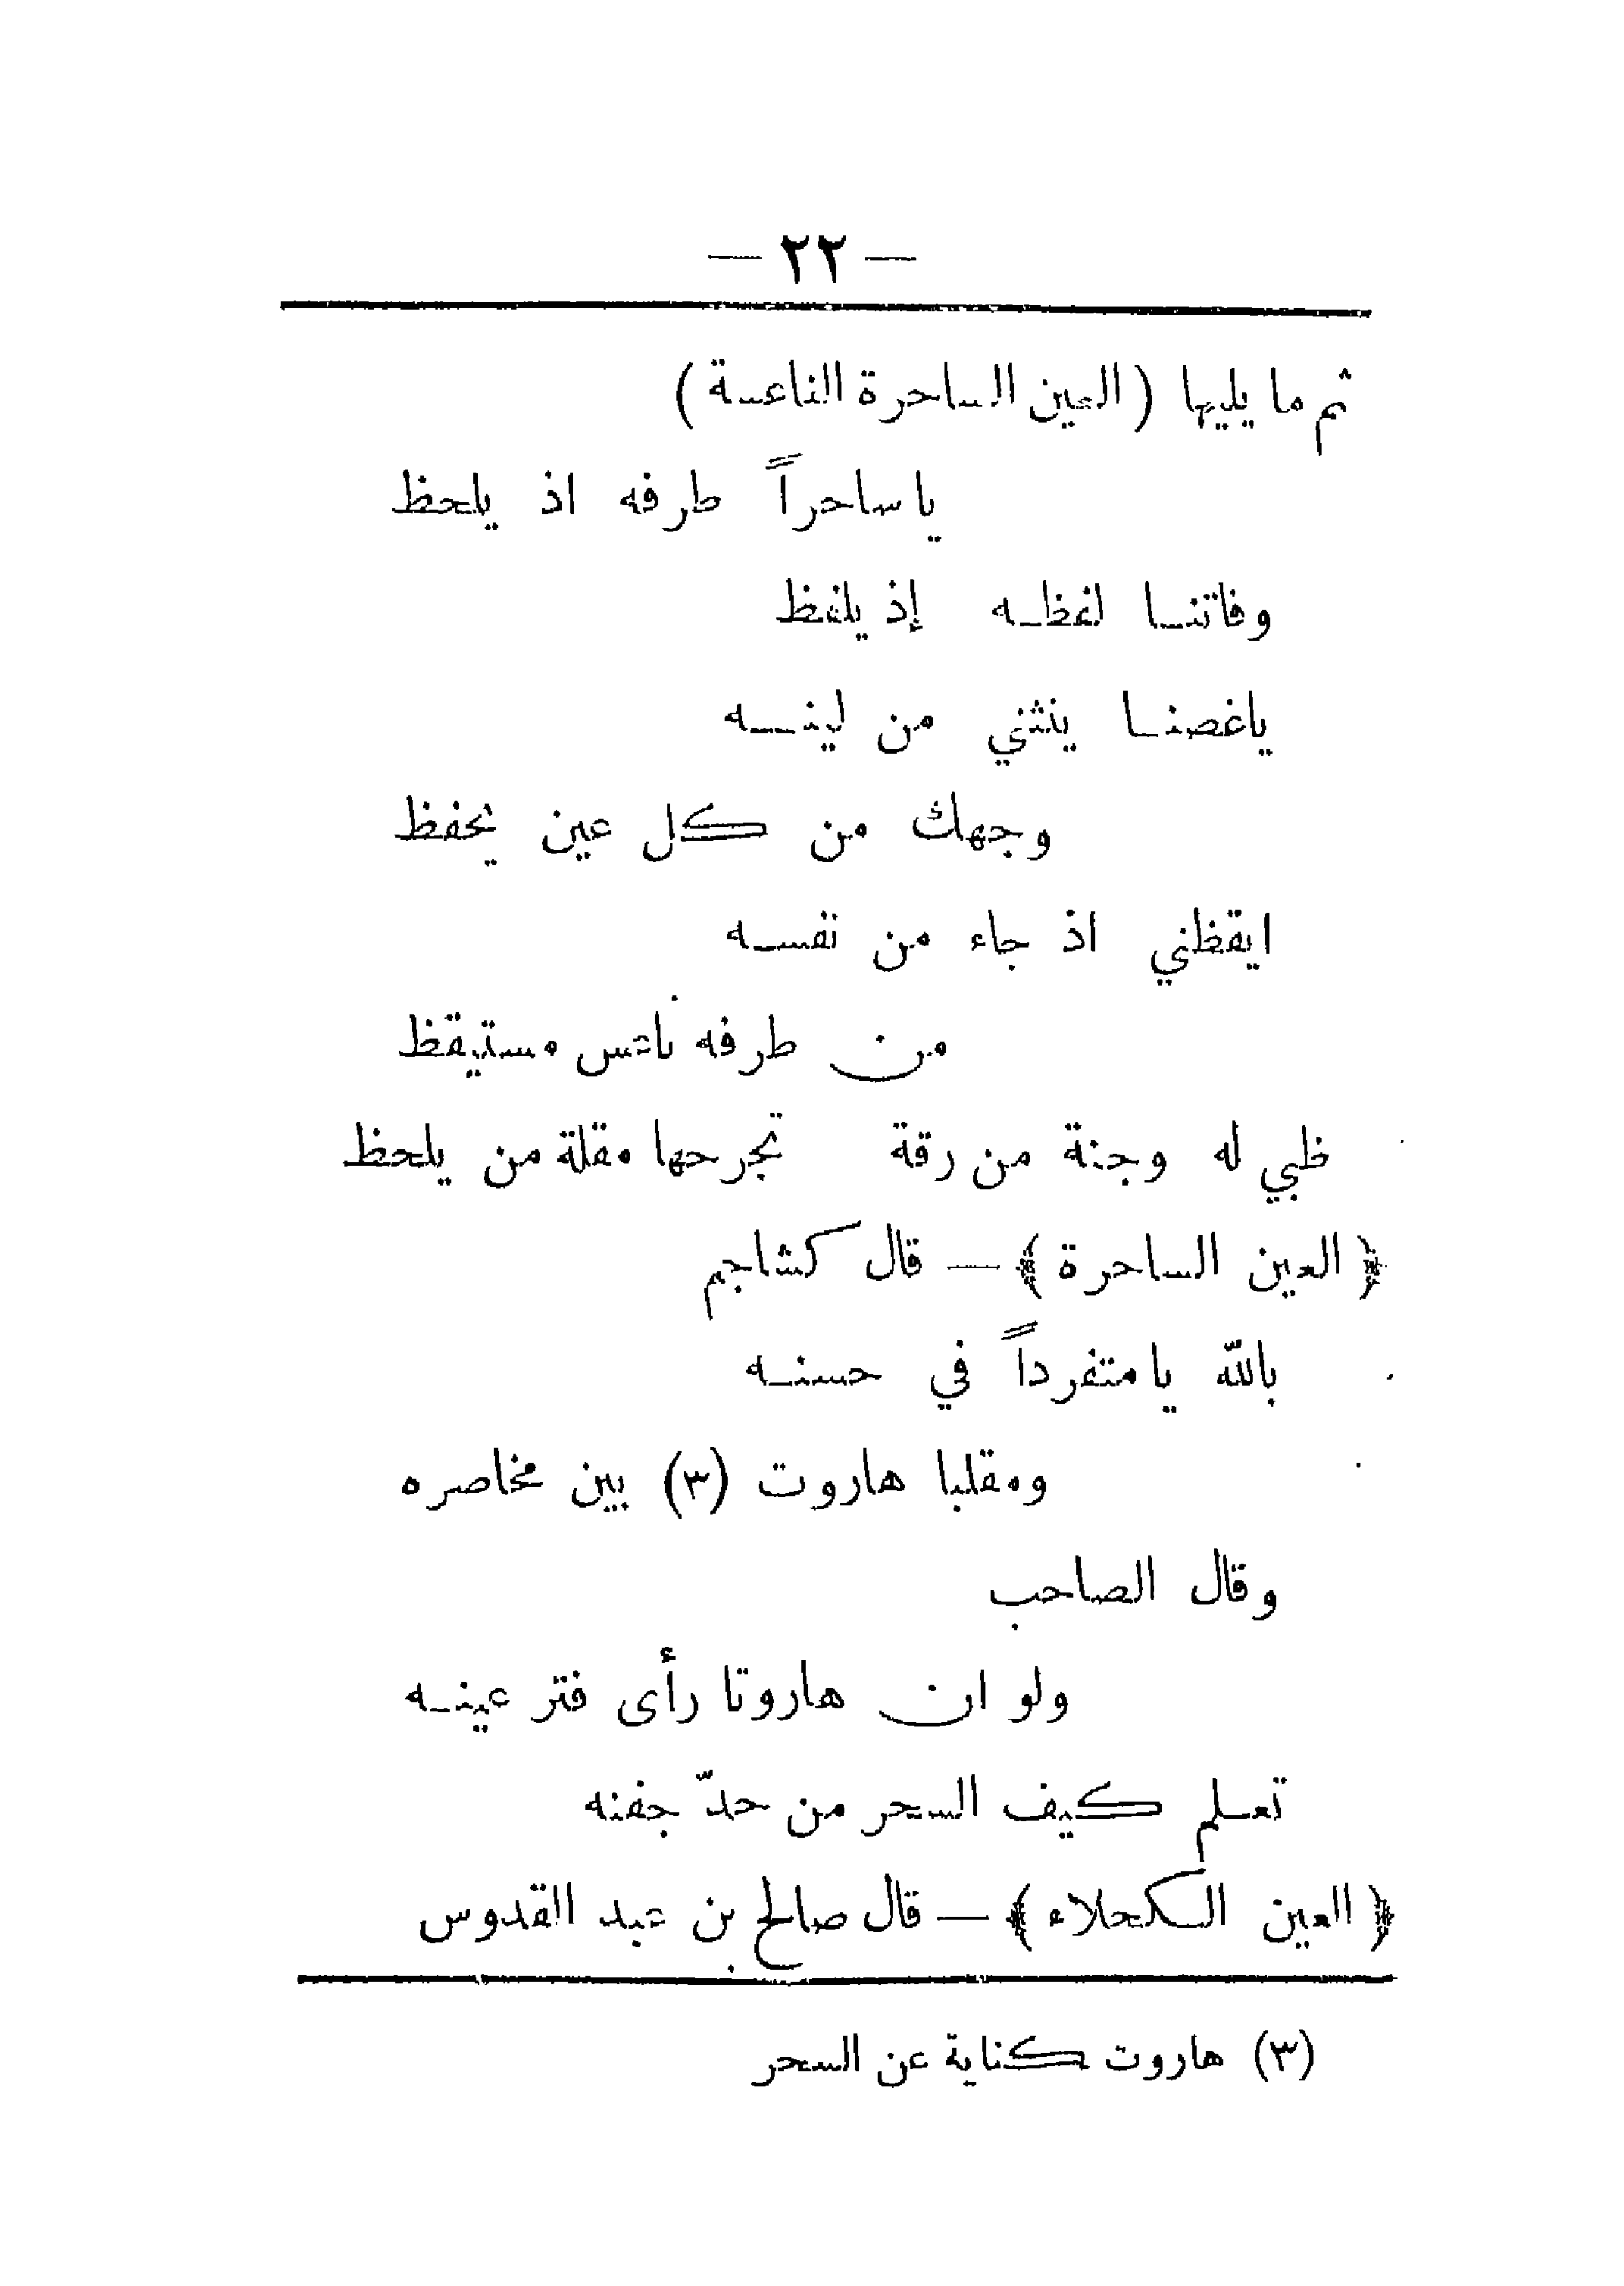 — ٢٢ —
ثم ما يليها ( العين الساحرة الناعسة )
يا ساحراً طرفه اذ يلحظ
وفاتنـا لفظـه إذ يلفظ
ياغصنـا ينثني من لينـه
وجهك من كل عين يحفظ
ايقظني اذ جاء من نفسـه
من طرفه ناعس مستيقظ
ظبي له وجنة من رقة تجرحها مقلة من يلحظ
﴿ العين الساحرة ﴾ — قال كشاجم
بالله يا متفرداً في حسنـه
ومقلبا هاروت (٣) بين مخاصره
وقال الصاحب
ولو ان هاروتا رأى فتر عينـه
تعـلم كيف السحر من حدّ جفنه
﴿ العين الكحلاء ﴾ — قال صالح بن عبد القدوس
(٣) هاروت كناية عن السحر